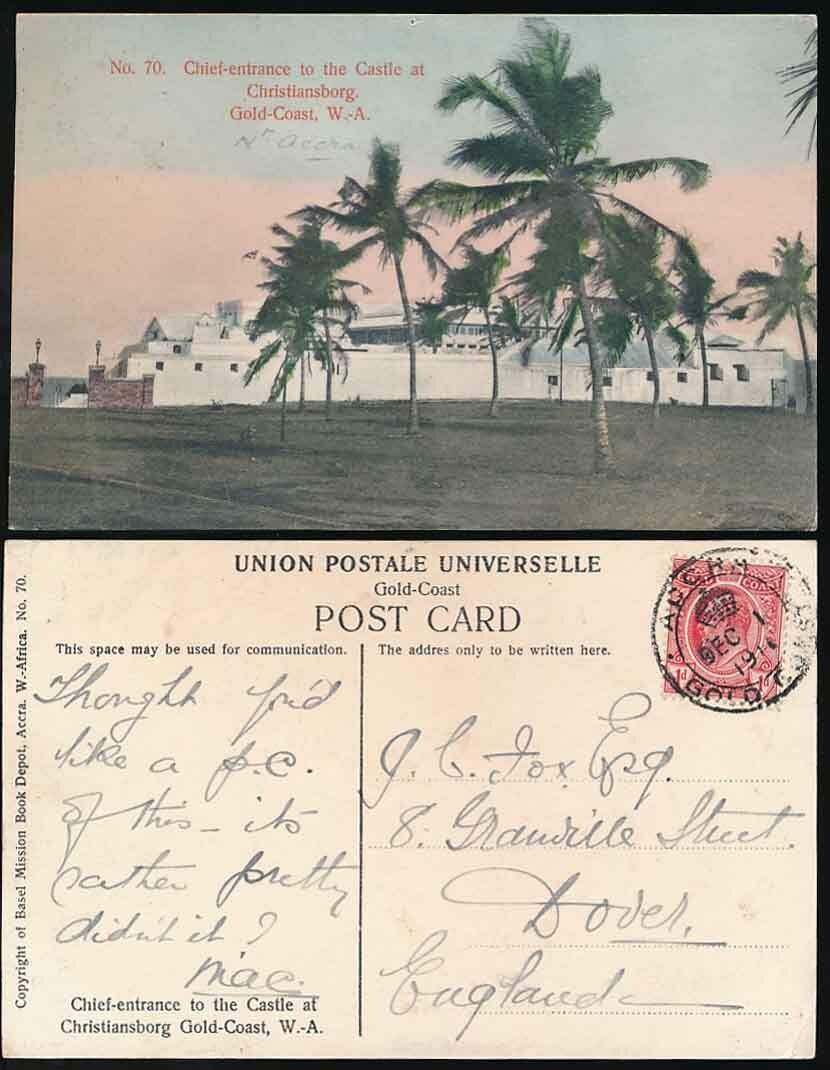 No. 70. Chief-entrance to the Castle at
Christiansborg.
Gold-Coast, W.-A.
Nr Accra
UNION POSTALE UNIVERSELLE
Gold-Coast
POST CARD
This space may be used for communication.
The addres only to be written here.
Thought you'd
like a p.c.
of this – its
rather pretty
didn't it?
Mac.
Chief-entrance to the Castle at
Christiansborg Gold-Coast, W.-A.
Copyright of Basel Mission Book Depot, Accra. W.-Africa. No. 70.
ACCRA
DEC 1
GOLD
1d 1d
J. C. Fox Esq.
8. Granville Street.
Dover.
England